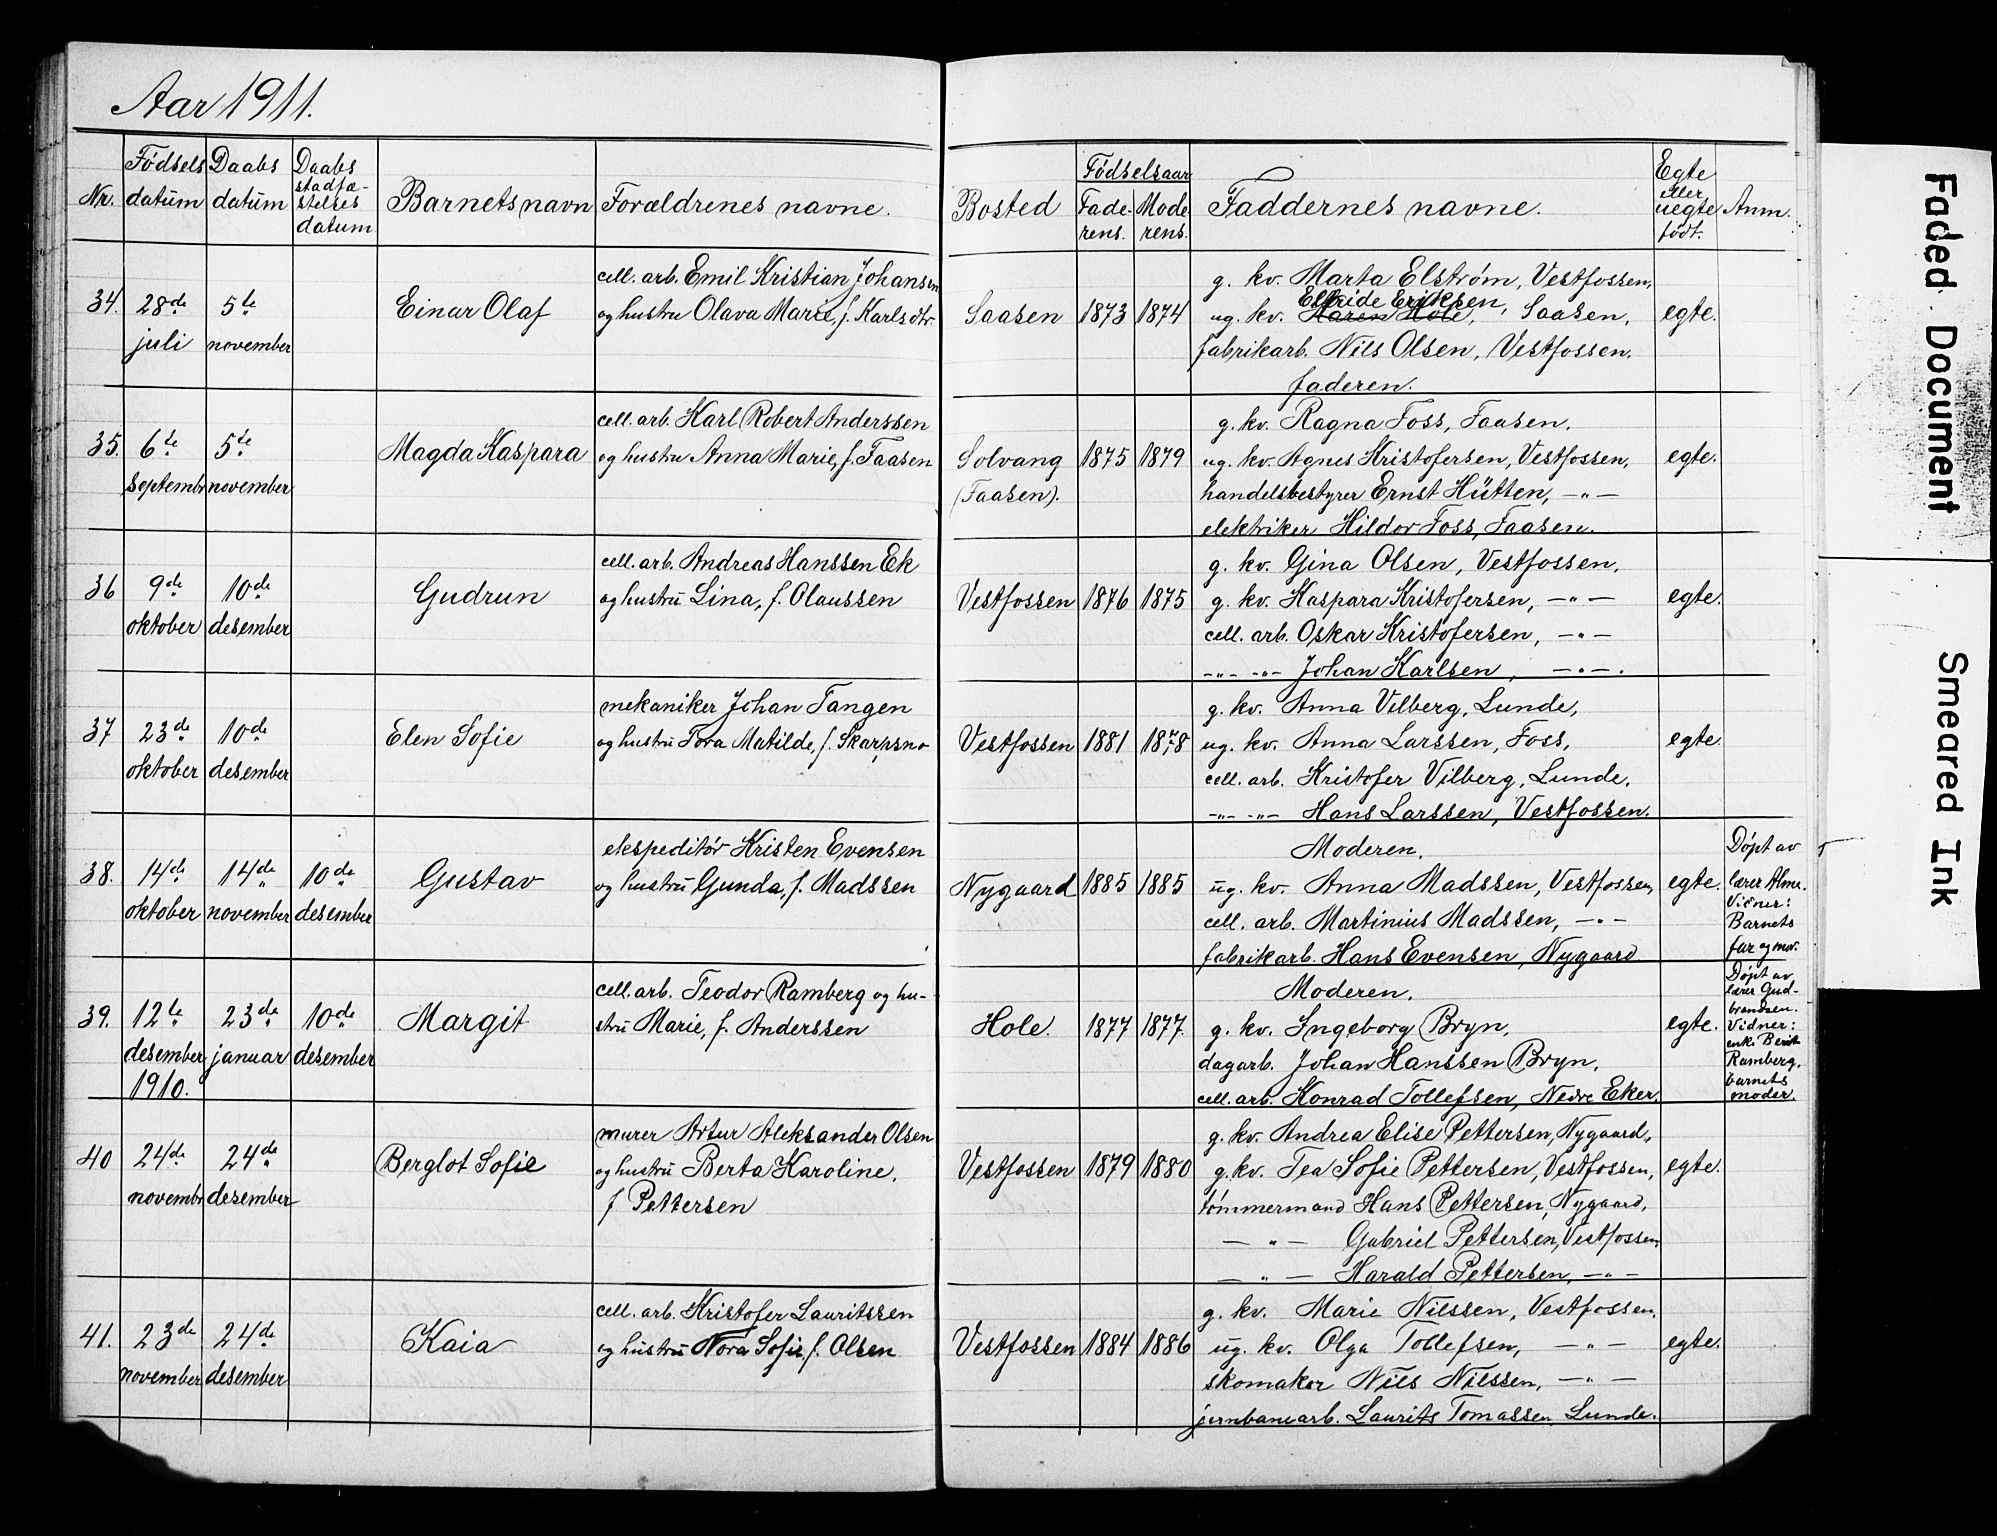 Aar 1911.
Nr. Fødsels datum Daabs datum Daabs stadfæ- stelses datum Barnets navn Forældrenes navne. Bosted Fødselsaar Fade- rens. Mode- rens. Faddernes navne. Egte eller uegte født. Anm.
34. 28de juli 5te november Einar Olaf
cell. arb. Emil Kristian Johansen
og hustru Olava Marie, f. Karlsdtr.
Saasen 1873 1874
g. kv. Marta Elström, Vestfossen,
Elfride Eriksen,
ug. kv. Karen Hole, Saasen,
fabrikarb. Nils Olsen, Vestfossen.
faderen.
egte.
35. 6te septembr 5te november Magda Kaspara
cell. arb. Karl Robert Anderssen
og hustru Anna Marie, f. Faasen
Solvang
(Faasen).
1875 1879
g. kv. Ragna Foss, Faasen,
ug. kv. Agnes Kristofersen, Vestfossen,
handelsbestyrer Ernst Hütten, —„—
elektriker Hildor Foss, Faasen.
egte.
36 9de oktober 10de desember Gudrun
cell. arb. Andreas Hanssen Ek
og hustru Lina, f. Olaussen
Vestfossen 1876 1875
g. kv. Gina Olsen, Vestfossen,
g. kv. Kaspara Kristofersen, —„—
cell. arb. Oskar Kristofersen, —„—
—„— —„— Johan Karlsen, —„—.
egte.
37 23de oktober 10de desember Elen Sofie
mekaniker Johan Tangen
og hustru Tora Matilde, f. Skarpsno
Vestfossen 1881 1878
g. kv. Anna Vilberg, Lunde,
ug. kv. Anna Larssen, Foss,
cell. arb. Kristofer Vilberg, Lunde,
—„— —„— Hans Larssen, Vestfossen.
egte.
38. 14de oktober 14de november 10de desember Gustav
ekspeditør Kristen Evensen
og hustru Gunda, f. Madssen
Nygaard 1885 1885
Moderen.
ug. kv. Anna Madssen, Vestfossen,
cell. arb. Martinius Madssen, —„—
fabrikarb. Hans Evensen, Nygaard
egte.
Døpt av
lærer Alme.
Vidner:
Barnets
far og mor.
39. 12te desember 1910. 23de januar 10de desember Margit
cell. arb. Teodor Ramberg og hu-
stru Marie, f. Anderssen
Hole. 1877 1877.
Moderen.
g. kv. Ingeborg Bryn,
dagarb. Johan Hanssen Bryn,
cell. arb. Konrad Tollefsen, Nedre Eker.
egte.
Døpt av
lærer Gud-
brandsen.
Vidner:
enke Berit
Ramberg,
barnets
moder.
40 24de novembr 24de desember Berglot Sofie
murer Artur Aleksander Olsen
og hustru Berta Karoline,
f Pettersen
Vestfossen 1879 1880
g. kv. Andrea Elise Pettersen, Nygaard,
g. kv. Tea Sofie Pettersen, Vestfossen,
tømmermand Hans Pettersen, Nygaard,
— „ — Gabriel Pettersen, Vestfossen,
— „ — Harald Pettersen, —„—
egte.
41. 23de november 24de desember Kaia
cell. arb. Kristofer Lauritssen
og hustru Nora Sofie, f. Olsen
Vestfossen 1884 1886
g. kv. Marie Nilssen, Vestfossen,
ug. kv. Olga Tollefsen, —„—
skomaker Nils Nilssen, —„—
jernbanearb. Laurits Tomassen, Lunde.
egte.
Faded Document
Smeared Ink